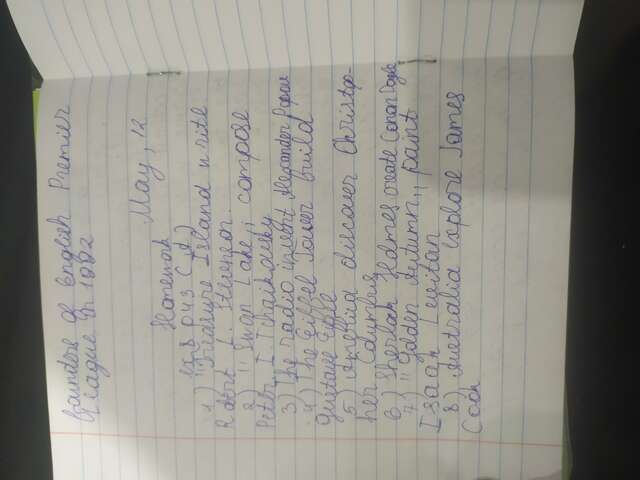 Founders of English Premier
League in 1992
May, 12
Homework
Ex 5 p 43 (d)
1) Treasure Island write
Robert L. Stevenson
2) " Swan Lake,, compose
Peter I Tchaikovsky
3) The radio invent Alexander Popov
4) The Eiffel Tower build
Gustave Eiffel
5) America discover Christop-
her Columbus
6) Sherlock Holmes create Conan Doyle
7) " Golden Autumn,, paint
Isaak Levitan
8) Australia explore James
Cook